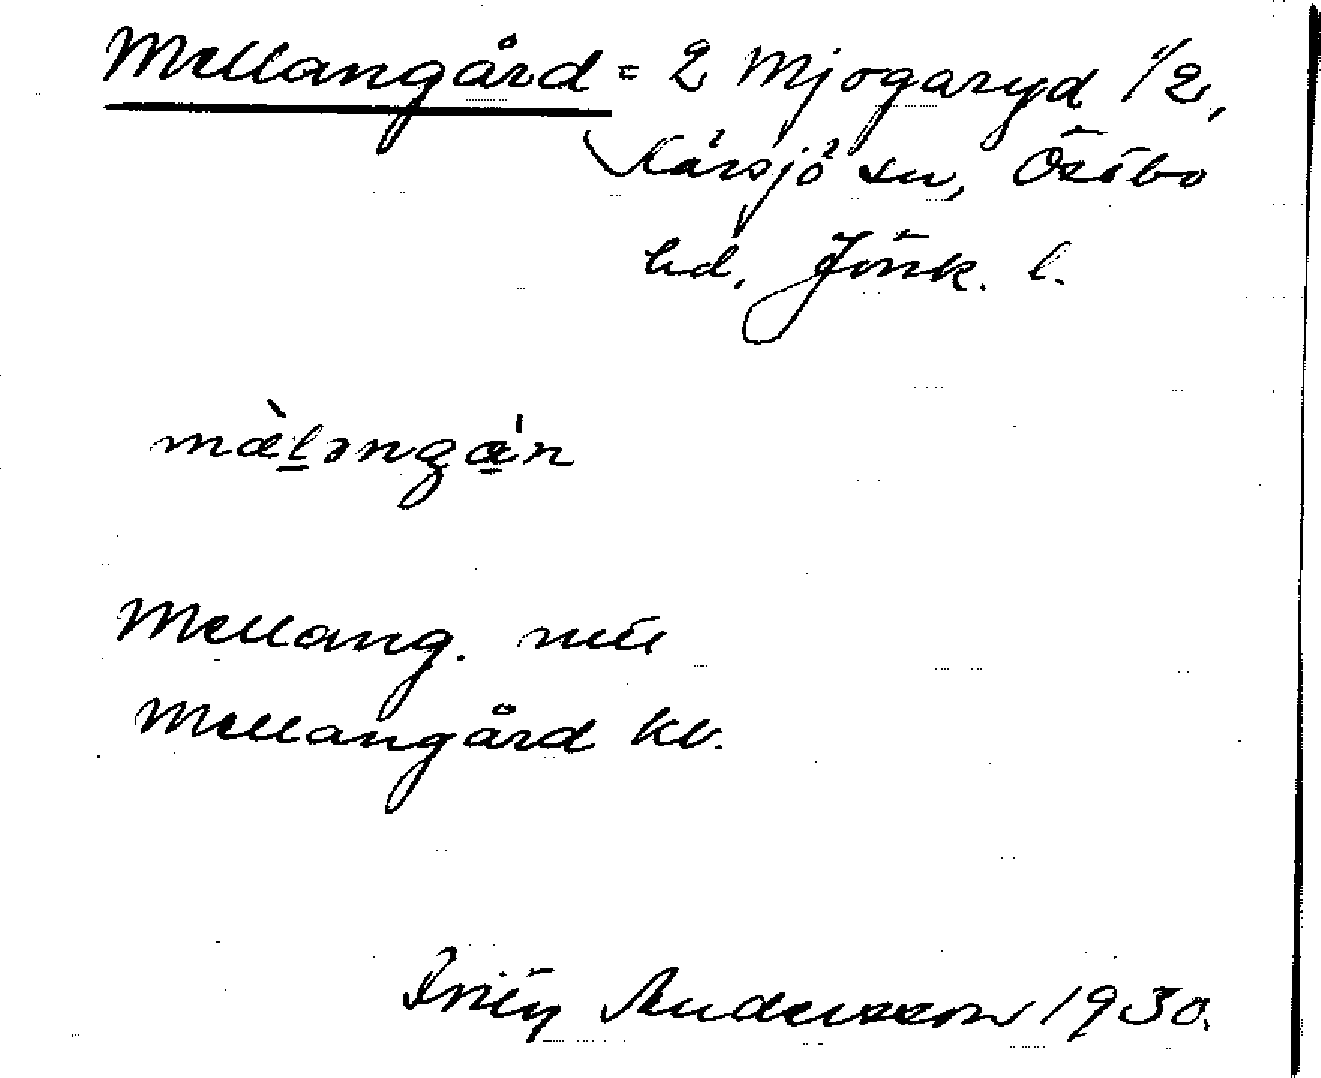 Mellangård = 2 Mjogaryd 1/2,
Kårsjö sn, Östbo
hd, Jönk. l.
mæ̀l̠ənga̠'r
Mellang. 
Mellangård kv.
Andersson 1930.